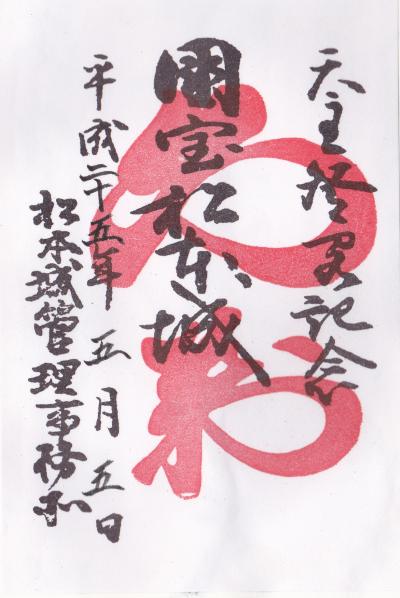 天主登閣記念
国宝松本城
平成二十五年五月五日
松本城管理事務所